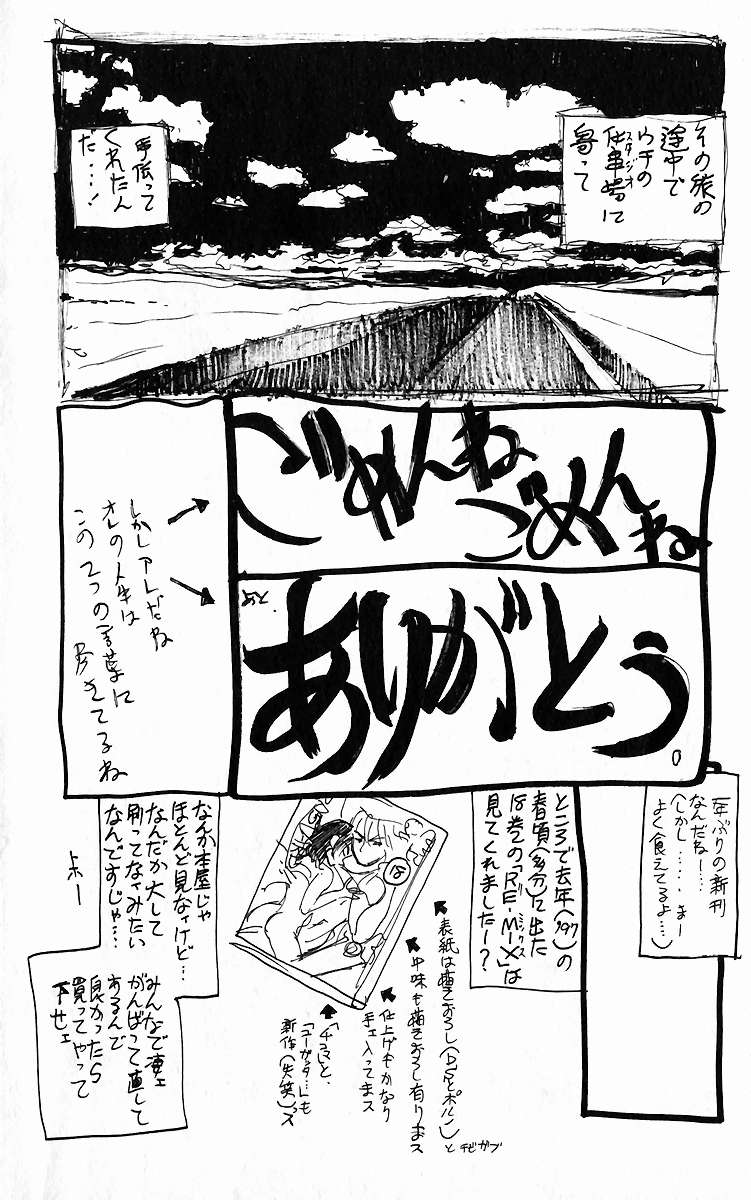 その旅の
途中で
ウチの
仕事場に
スタジオ
寄って
手伝って
くれたん
だ…！
ごめんね
ごめんね
ありがとう
しかしアレだね
オレの人生は
この2つの言葉に
尽きてるね
一年ぶりの新刊
なんだねー…
(しかし……まー
よく食えてるよ…)
ところで去年('97)の
春頃(多分)に出た
18巻の「RE-MIX」は
ミックス
見てくれましたー？
18
表紙は描きおろし(D.Sとポルン)と
チビガブ
中味も描きおろし有りまス
仕上げもかなり
手ェ入ってまス
「ユーガッタ…」も
新作(失笑)ズ
なんか本屋じゃ
ほとんど見ないけど…
なんだか大して
刷ってないみたい
なんですじゃ…
みんなで凄ェ
がんばって直して
あるんで
良かったら
買ってやって
下せェ